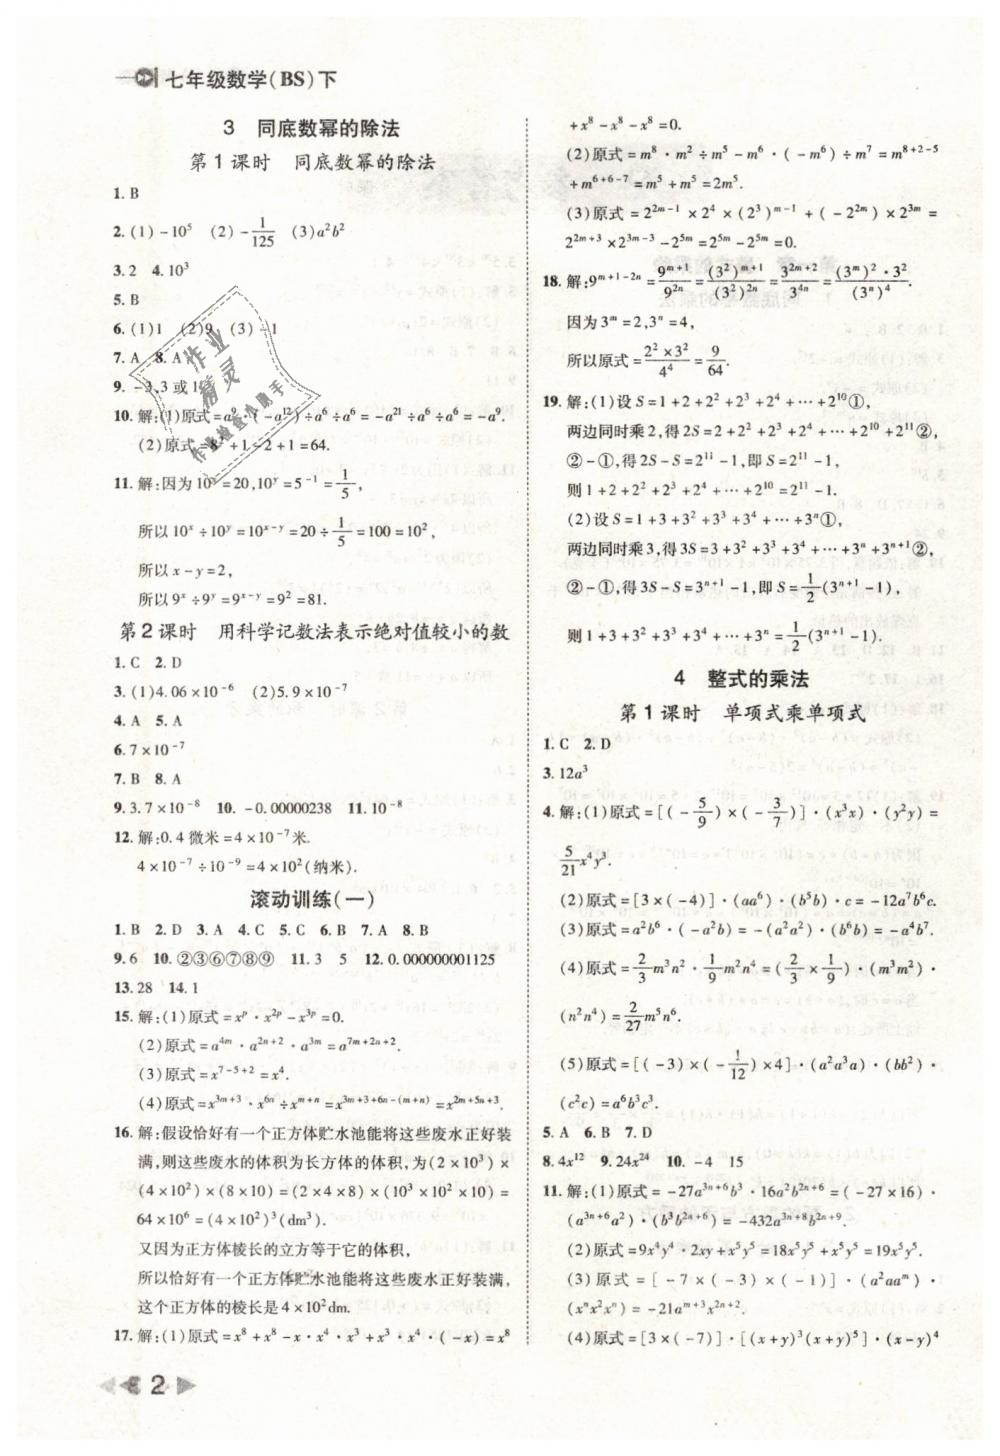 七年级数学(BS)下
3 同底数幂的除法
第1课时 同底数幂的除法
1. B
2. (1)-10⁵ (2)-1/125 (3)a²b²
3. 2 4. 10³
5. B
6. (1)1 (2)9 (3)-1
7. A 8. A
9. -3,3或1
10. 解:(1)原式=a⁹·(-a¹²)÷a⁶÷a⁶=-a²¹÷a⁶÷a⁶=-a⁹.
(2)原式=8²÷1÷2+1=64.
11. 解:因为10ˣ=20,10ʸ=5⁻¹=1/5,
所以10ˣ÷10ʸ=10ˣ⁻ʸ=20÷1/5=100=10²,
所以x-y=2,
所以9ˣ÷9ʸ=9ˣ⁻ʸ=9²=81.
第2课时 用科学记数法表示绝对值较小的数
1. C 2. D
3. (1)4.06×10⁻⁶ (2)5.9×10⁻⁷
4. A 5. A
6. 7×10⁻⁷
7. B 8. A
9. 3.7×10⁻⁸ 10. -0.00000238 11. 10⁻⁸
12. 解:0.4微米=4×10⁻⁷米.
4×10⁻⁷÷10⁻⁹=4×10²(纳米).
滚动训练(一)
1. B 2. D 3. A 4. C 5. C 6. B 7. A 8. B
9. 6 10. ②③⑥⑦⑧⑨ 11. 3 5 12. 0.000000001125
13. 28 14. 1
15. 解:(1)原式=x^p·x^(2p)-x^(3p)=0.
(2)原式=a^(4m)·a^(2n+2)·a^(3m)=a^(7m+2n+2).
(3)原式=x^(7-5+2)=x⁴.
(4)原式=x^(3m+3)·x^(6n)÷x^(m+n)=x^(3m+3+6n-(m+n))=x^(2m+5n+3).
16. 解:假设恰好有一个正方体贮水池能将这些废水正好装
满,则这些废水的体积为长方体的体积,为(2×10³)×
(4×10²)×(8×10)=(2×4×8)×(10³×10²×10)=
64×10⁶=(4×10²)³(dm³).
又因为正方体棱长的立方等于它的体积,
所以恰好有一个正方体贮水池能将这些废水正好装满,
这个正方体的棱长是4×10²dm.
17. 解:(1)原式=x⁸+x⁸-x·x⁴·x³+x³·x⁴·(-x)=x⁸
2
+x⁸-x⁸-x⁸=0.
(2)原式=m⁸·m²÷m⁵-m⁶·(-m⁶)÷m⁷=m⁸⁺²⁻⁵
+m⁶⁺⁶⁻⁷=m⁵+m⁵=2m⁵.
(3)原式=2^(2m-1)×2⁴×(2³)^(m-1)+(-2^(2m))×2^(3m)=
2^(2m+3)×2^(3m-3)-2^(5m)=2^(5m)-2^(5m)=0.
18. 解:9^(m+1-2n)=9^(m+1)/9^(2n)=(3²)^(m+1)/(3²)^(2n)=3^(2m+2)/3^(4n)=(3^m)²·3²/(3^n)⁴.
因为3^m=2,3^n=4,
所以原式=2²×3²/4⁴=9/64.
19. 解:(1)设S=1+2+2²+2³+2⁴+…+2¹⁰①,
两边同时乘2,得2S=2+2²+2³+2⁴+…+2¹⁰+2¹¹②,
②-①,得2S-S=2¹¹-1,即S=2¹¹-1,
则1+2+2²+2³+2⁴+…+2¹⁰=2¹¹-1.
(2)设S=1+3+3²+3³+3⁴+…+3ⁿ①,
两边同时乘3,得3S=3+3²+3³+3⁴+…+3ⁿ+3ⁿ⁺¹②,
②-①,得3S-S=3ⁿ⁺¹-1,即S=1/2(3ⁿ⁺¹-1),
则1+3+3²+3³+3⁴+…+3ⁿ=1/2(3ⁿ⁺¹-1).
4 整式的乘法
第1课时 单项式乘单项式
1. C 2. D
3. 12a³
4. 解:(1)原式=[(-5/9)×(-3/7)]·(x³x)·(y²y)=
5/21x⁴y³.
(2)原式=[3×(-4)]·(aa⁶)·(b⁵b)·c=-12a⁷b⁶c.
(3)原式=a²b⁶·(-a²b)=-(a²a²)·(b⁶b)=-a⁴b⁷.
(4)原式=2/3m³n²·1/9m²n⁴=(2/3×1/9)·(m³m²)·
(n²n⁴)=2/27m⁵n⁶.
(5)原式=[(-3)×(-1/12)×4]·(a²a³a)·(bb²)·
(c²c)=a⁶b³c³.
5. A 6. B 7. D
8. 4x¹² 9. 24x²⁴ 10. -4 15
11. 解:(1)原式=-27a^(3n+6)b³·16a²b^(2n+6)=(-27×16)·
(a^(3n+6)a²)·(b³b^(2n+6))=-432a^(3n+8)b^(2n+9).
(2)原式=9x⁴y⁴·2xy+x⁵y⁵=18x⁵y⁵+x⁵y⁵=19x⁵y⁵.
(3)原式=[-7×(-3)×(-1)]·(a²aa^m)·
(xⁿx²xⁿ)=-21a^(m+3)x^(2n+2).
(4)原式=[3×(-7)]·[(x+y)³(x+y)⁵]·(x-y)⁴
作业
精灵
作业检查小助手